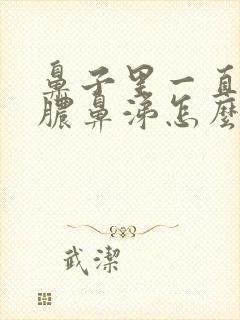 鼻子里一直
膿鼻涕怎麼
武潔